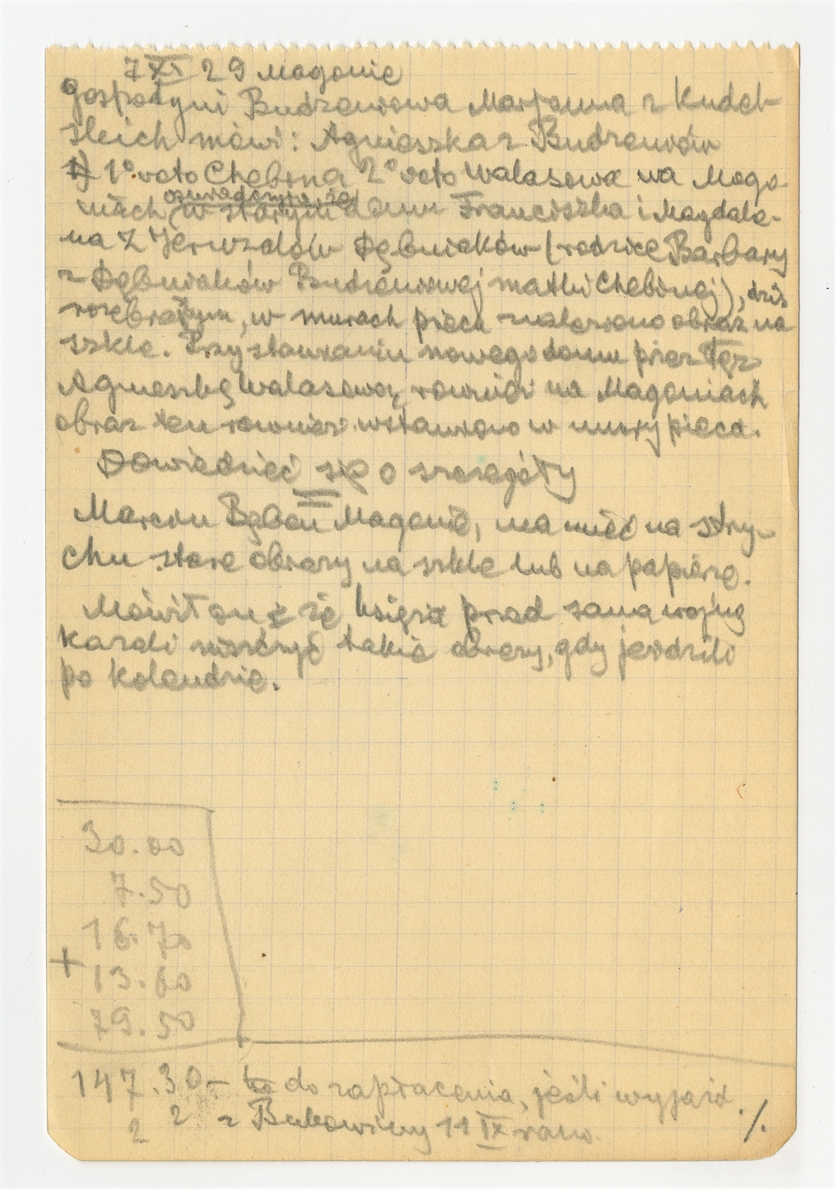 7 XI 29 Magonie
gospodyni Budzowa Marjanna z Kudeł-
skich mówi: Agnieszka z Budzowów
1) 1° voto Chebina 2° voto Walasowa na Mago-
niach oświadczyła, że w starym domu Franciszka i Magdale-
na z Dębniaków (rodzice Barbary
z Dębniaków matki Chebinej), dziś
rozebranym, w murach pieca znaleziono obraz na
szkle. Przy stawianiu nowego domu przez tęż
Agnieszkę Walasową, również na Magoniach
obraz ten również wstawiono w mury pieca.
Dowiedzieć się o szczegóły
Marcin Magonie, ma mieć na stry-
chu stare obrazy na szkle lub na papierze.
Mówił on że się księża przed samą wojną
kazali niszczyć takie obrazy, gdy jeździli
po kolendzie.
30.00
7.50
16.70
+ 13.60
79.50
147.30 – do zapłacenia, jeśli wyjazd
2 2 z Bukowiny 11 IX rano. ./.